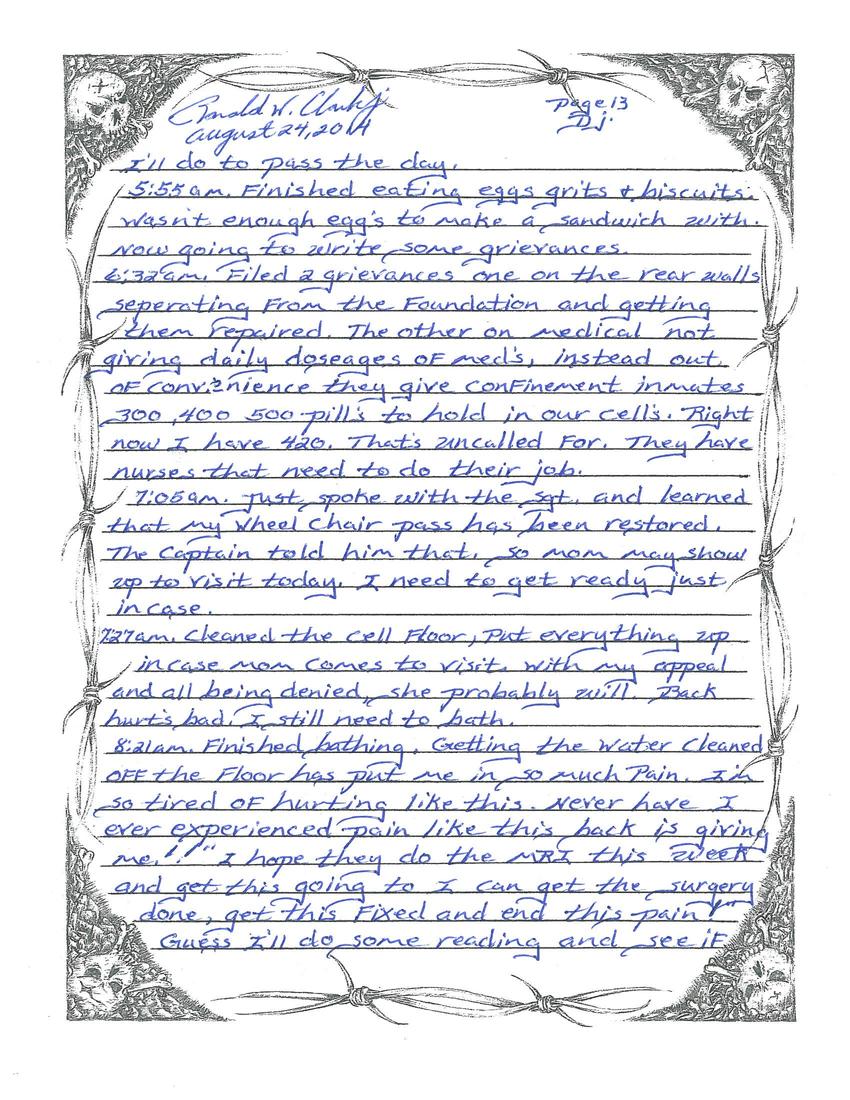 Ronald W. Clark Jr. page 13
August 24, 2014 D.J.
I'll do to pass the day.
5:55am. Finished eating eggs grits & biscuits.
wasn't enough egg's to make a sandwich with.
Now going to write some grievances.
6:32am. Filed 2 grievances one on the rear walls
seperating From the Foundation and getting
them repaired. The other on medical not
giving daily doseages OF med's, instead out
OF convenience they give conFinement inmates
300, 400 500 pill's to hold in our cell's. Right
now I have 420. That's uncalled For. They have
nurses that need to do their job.
7:05am. Just spoke with the Sgt. and learned
that my Wheel Chair pass has been restored.
The Captain told him that, so mom may show
up to visit today. I need to get ready just
incase.
7:27am. Cleaned the cell Floor, Put everything up
incase mom comes to visit. With my appeal
and all being denied, she probably will. Back
hurt's bad. I still need to bath.
8:21am. Finished bathing. Getting the water cleaned
OFF the Floor has put me in so much Pain. I'm
so tired OF hurting like this. Never have I
ever experienced pain like this back is giving
me.!!" I hope they do the MRI this week
and get this going to I can get the surgery
done, get this Fixed and end this pain!"
Guess I'll do some reading and see iF